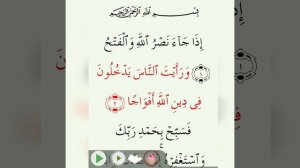 بِسْمِ اللَّهِ الرَّحْمَٰنِ الرَّحِيمِ
إِذَا جَآءَ نَصْرُ اللَّهِ وَالْفَتْحُ
﴿١﴾ وَرَأَيْتَ النَّاسَ يَدْخُلُونَ
فِى دِينِ اللَّهِ أَفْوَاجًا ﴿٢﴾
فَسَبِّحْ بِحَمْدِ رَبِّكَ
وَاسْتَغْفِرْ